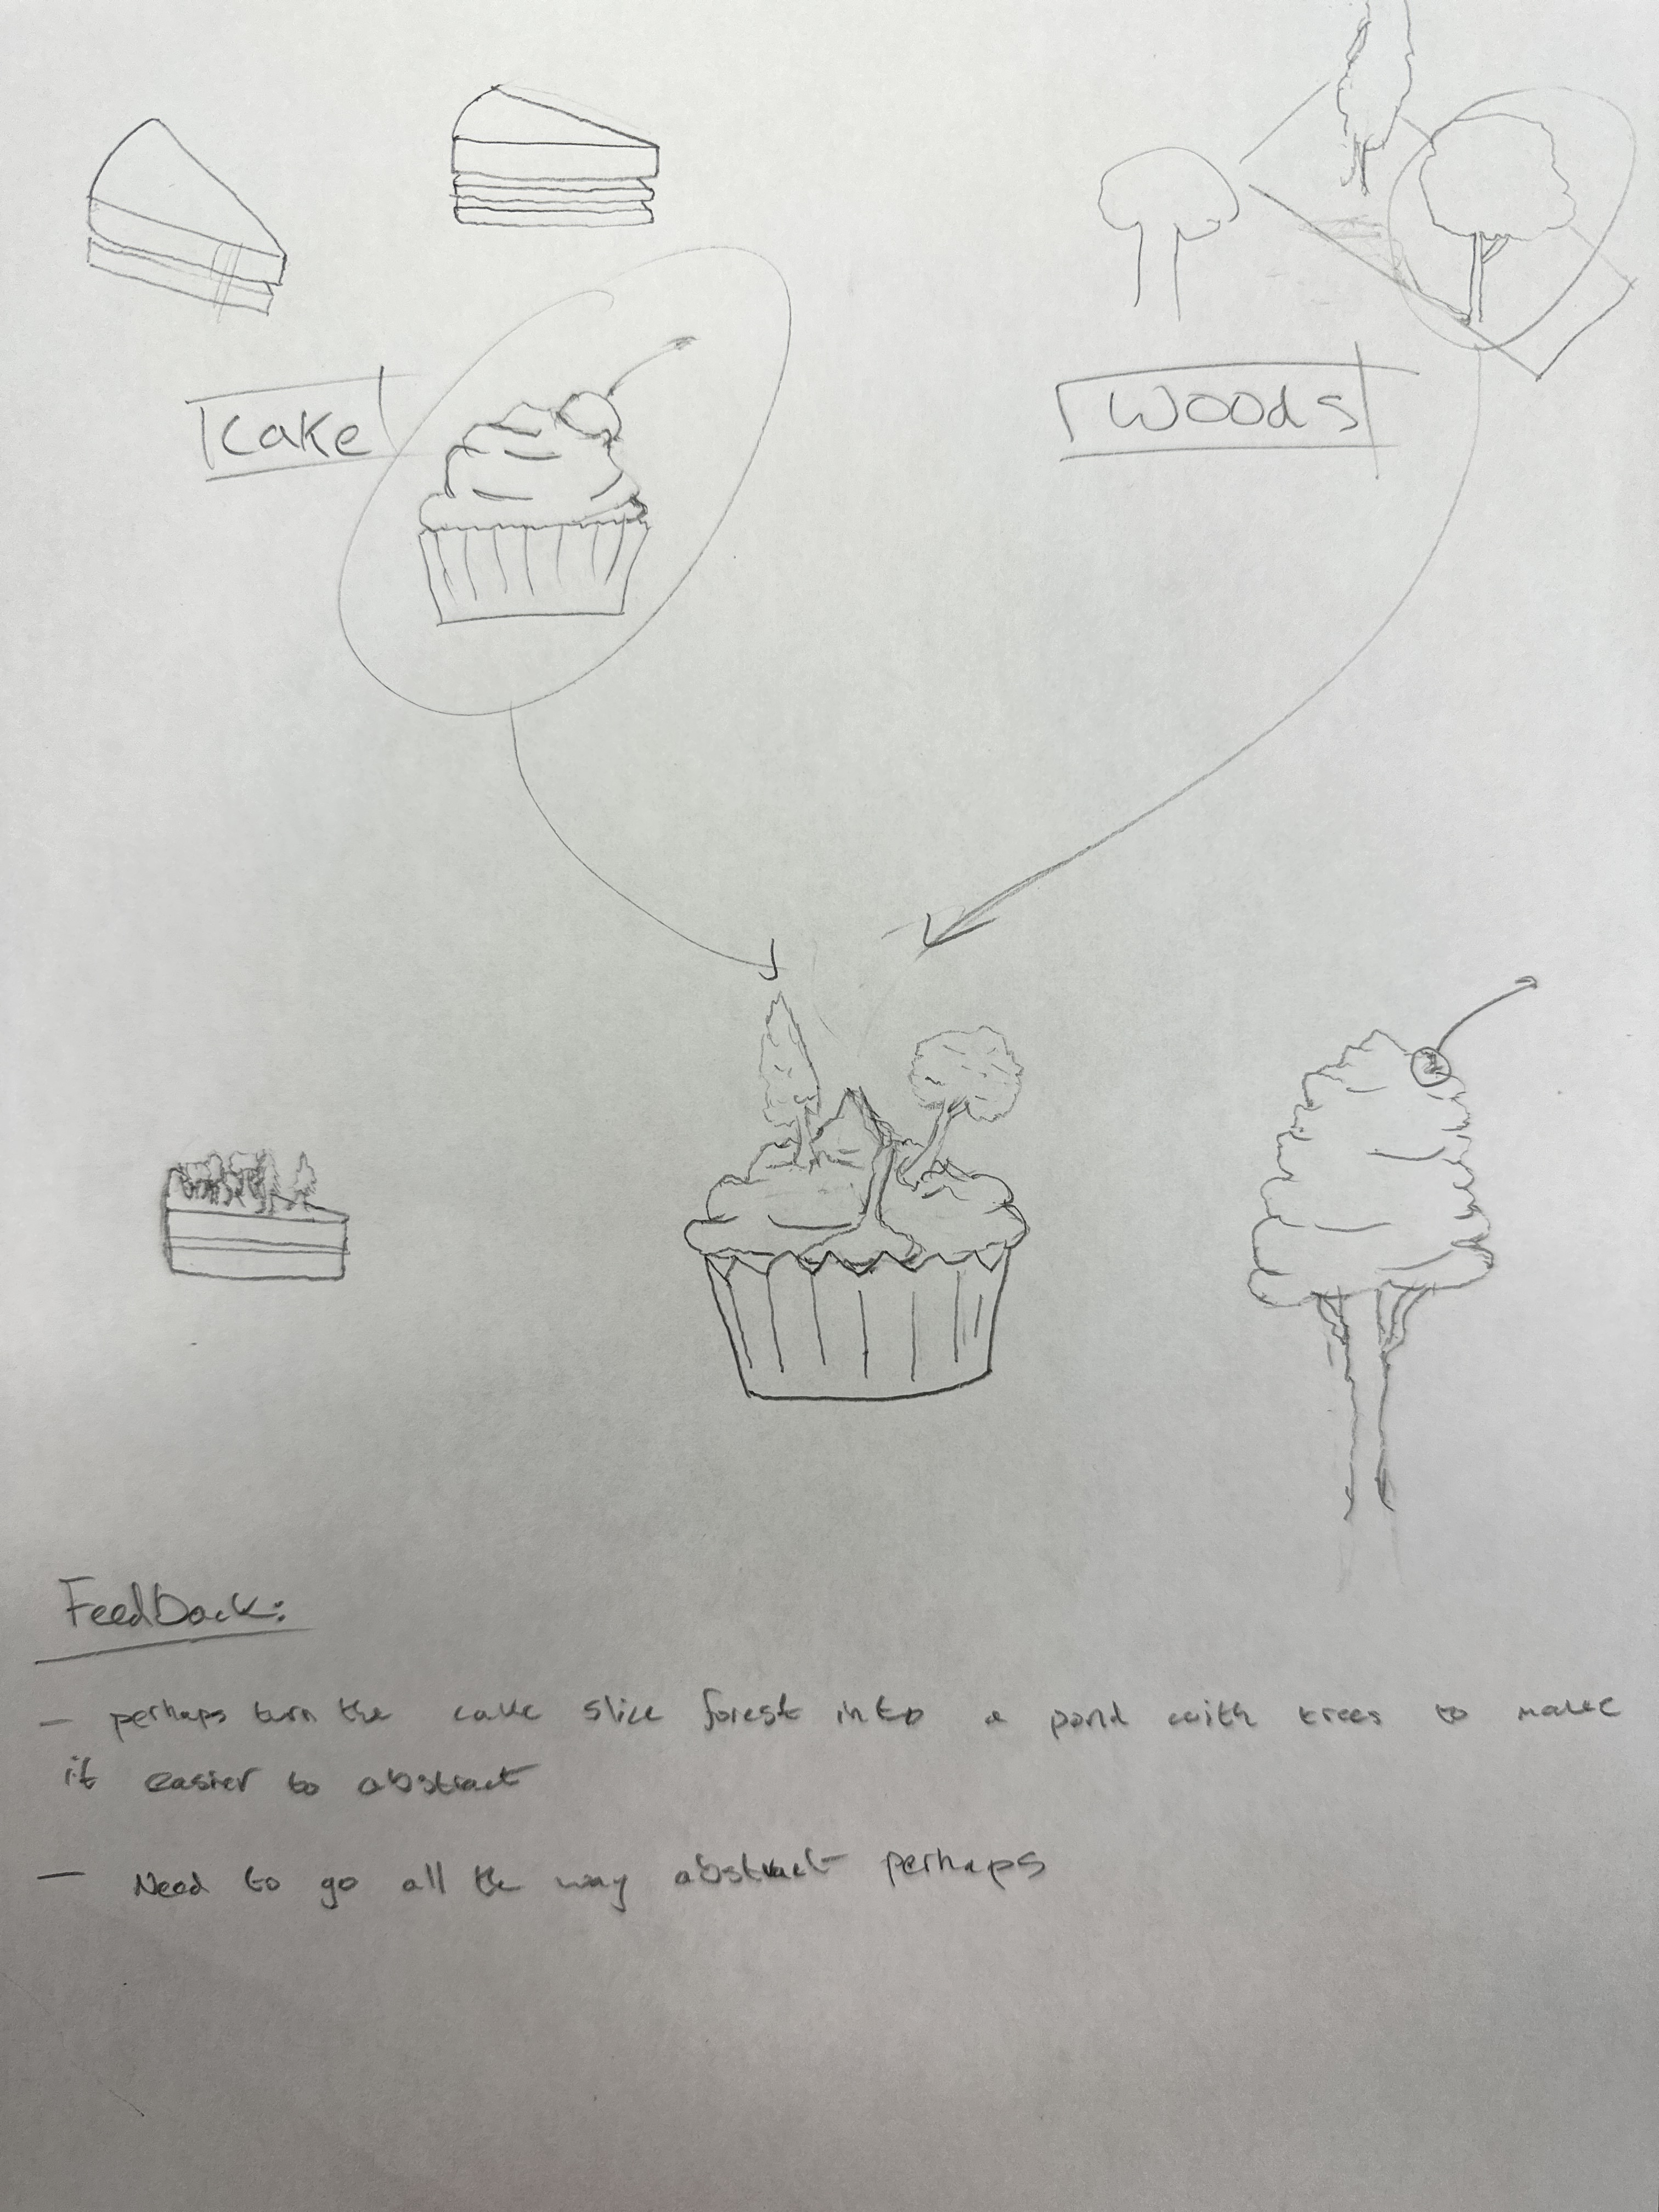 Cake
Woods
Feedback:
- perhaps turn the cake slice forest into a pond with trees to make
it easier to abstract
- Need to go all the way abstract perhaps